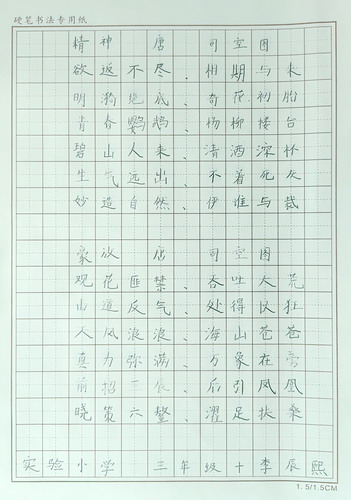 硬笔书法专用纸
精神 唐 司空图
欲返不尽、相期与来
明漪绝底、奇花初胎
青春鹦鹉、杨柳楼台
碧山人来、清酒深杯
生气远出、不着死灰
妙造自然、伊谁与裁
豪放 唐 司空图
观花匪禁、吞吐大荒
由道反气、处得以狂
天风浪浪、海山苍苍
真力弥满、万象在旁
前招三辰、后引凤凰
晓策六鳌、濯足扶桑
实验小学 三年级十李辰熙
1.5/1.5CM